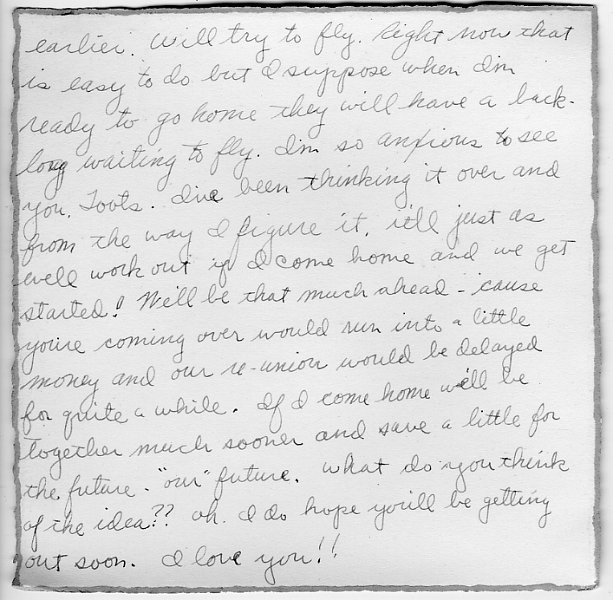 earlier. Will try to fly. Right now that
is easy to do but I suppose when I'm
ready to go home they will have a back-
log waiting to fly. I'm so anxious to see
you, Toots. I've been thinking it over and
from the way I figure it, it'll just as
well work out if I come home and we get
started! We'll be that much ahead - 'cause
you're coming over would run into a little
money and our re-union would be delayed
for quite a while. If I come home we'll be
together much sooner and save a little for
the future - "our" future. What do you think
of the idea?? Oh. I do hope you'll be getting
out soon. I love you!!